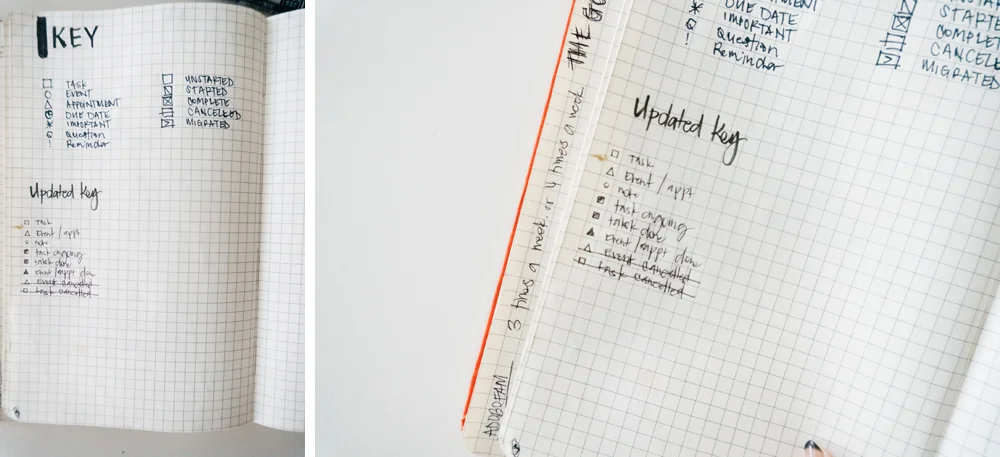 KEY
TASK
EVENT
APPOINTMENT
DUE DATE
IMPORTANT
Question
Reminder
UNSTARTED
STARTED
COMPLETE
CANCELLED
MIGRATED
Updated Key
TASK
Event / appt
note
task ongoing
task done
Event / appt done
Event Cancelled
task cancelled
THE
3 times a week or 4 times a week
DUE DATE
IMPORTANT
Question
Reminder
STARTE
COMPLET
CANCELLE
MIGRATED
Updated Key
TASK
Event / appt
note
task ongoing
task done
Event / appt done
Event Cancelled
task cancelled